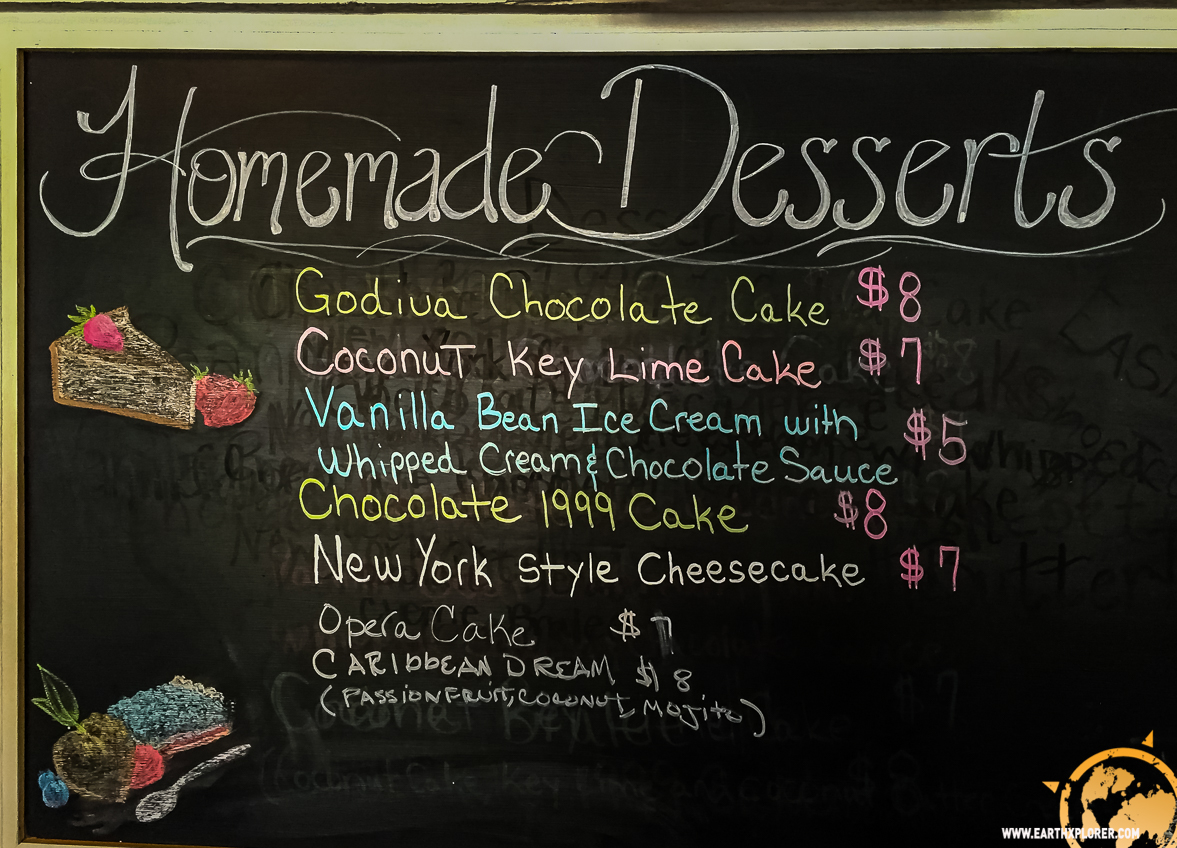 Homemade Desserts
Godiva Chocolate Cake $8
Coconut Key Lime Cake $7
Vanilla Bean Ice Cream with
Whipped Cream & Chocolate Sauce $5
Chocolate 1999 Cake $8
New York Style Cheesecake $7
Opera Cake $7
CARIBBEAN DREAM $8
(PASSIONFRUIT, COCONUT, MOJITO)
WWW.EARTHXPLORER.COM